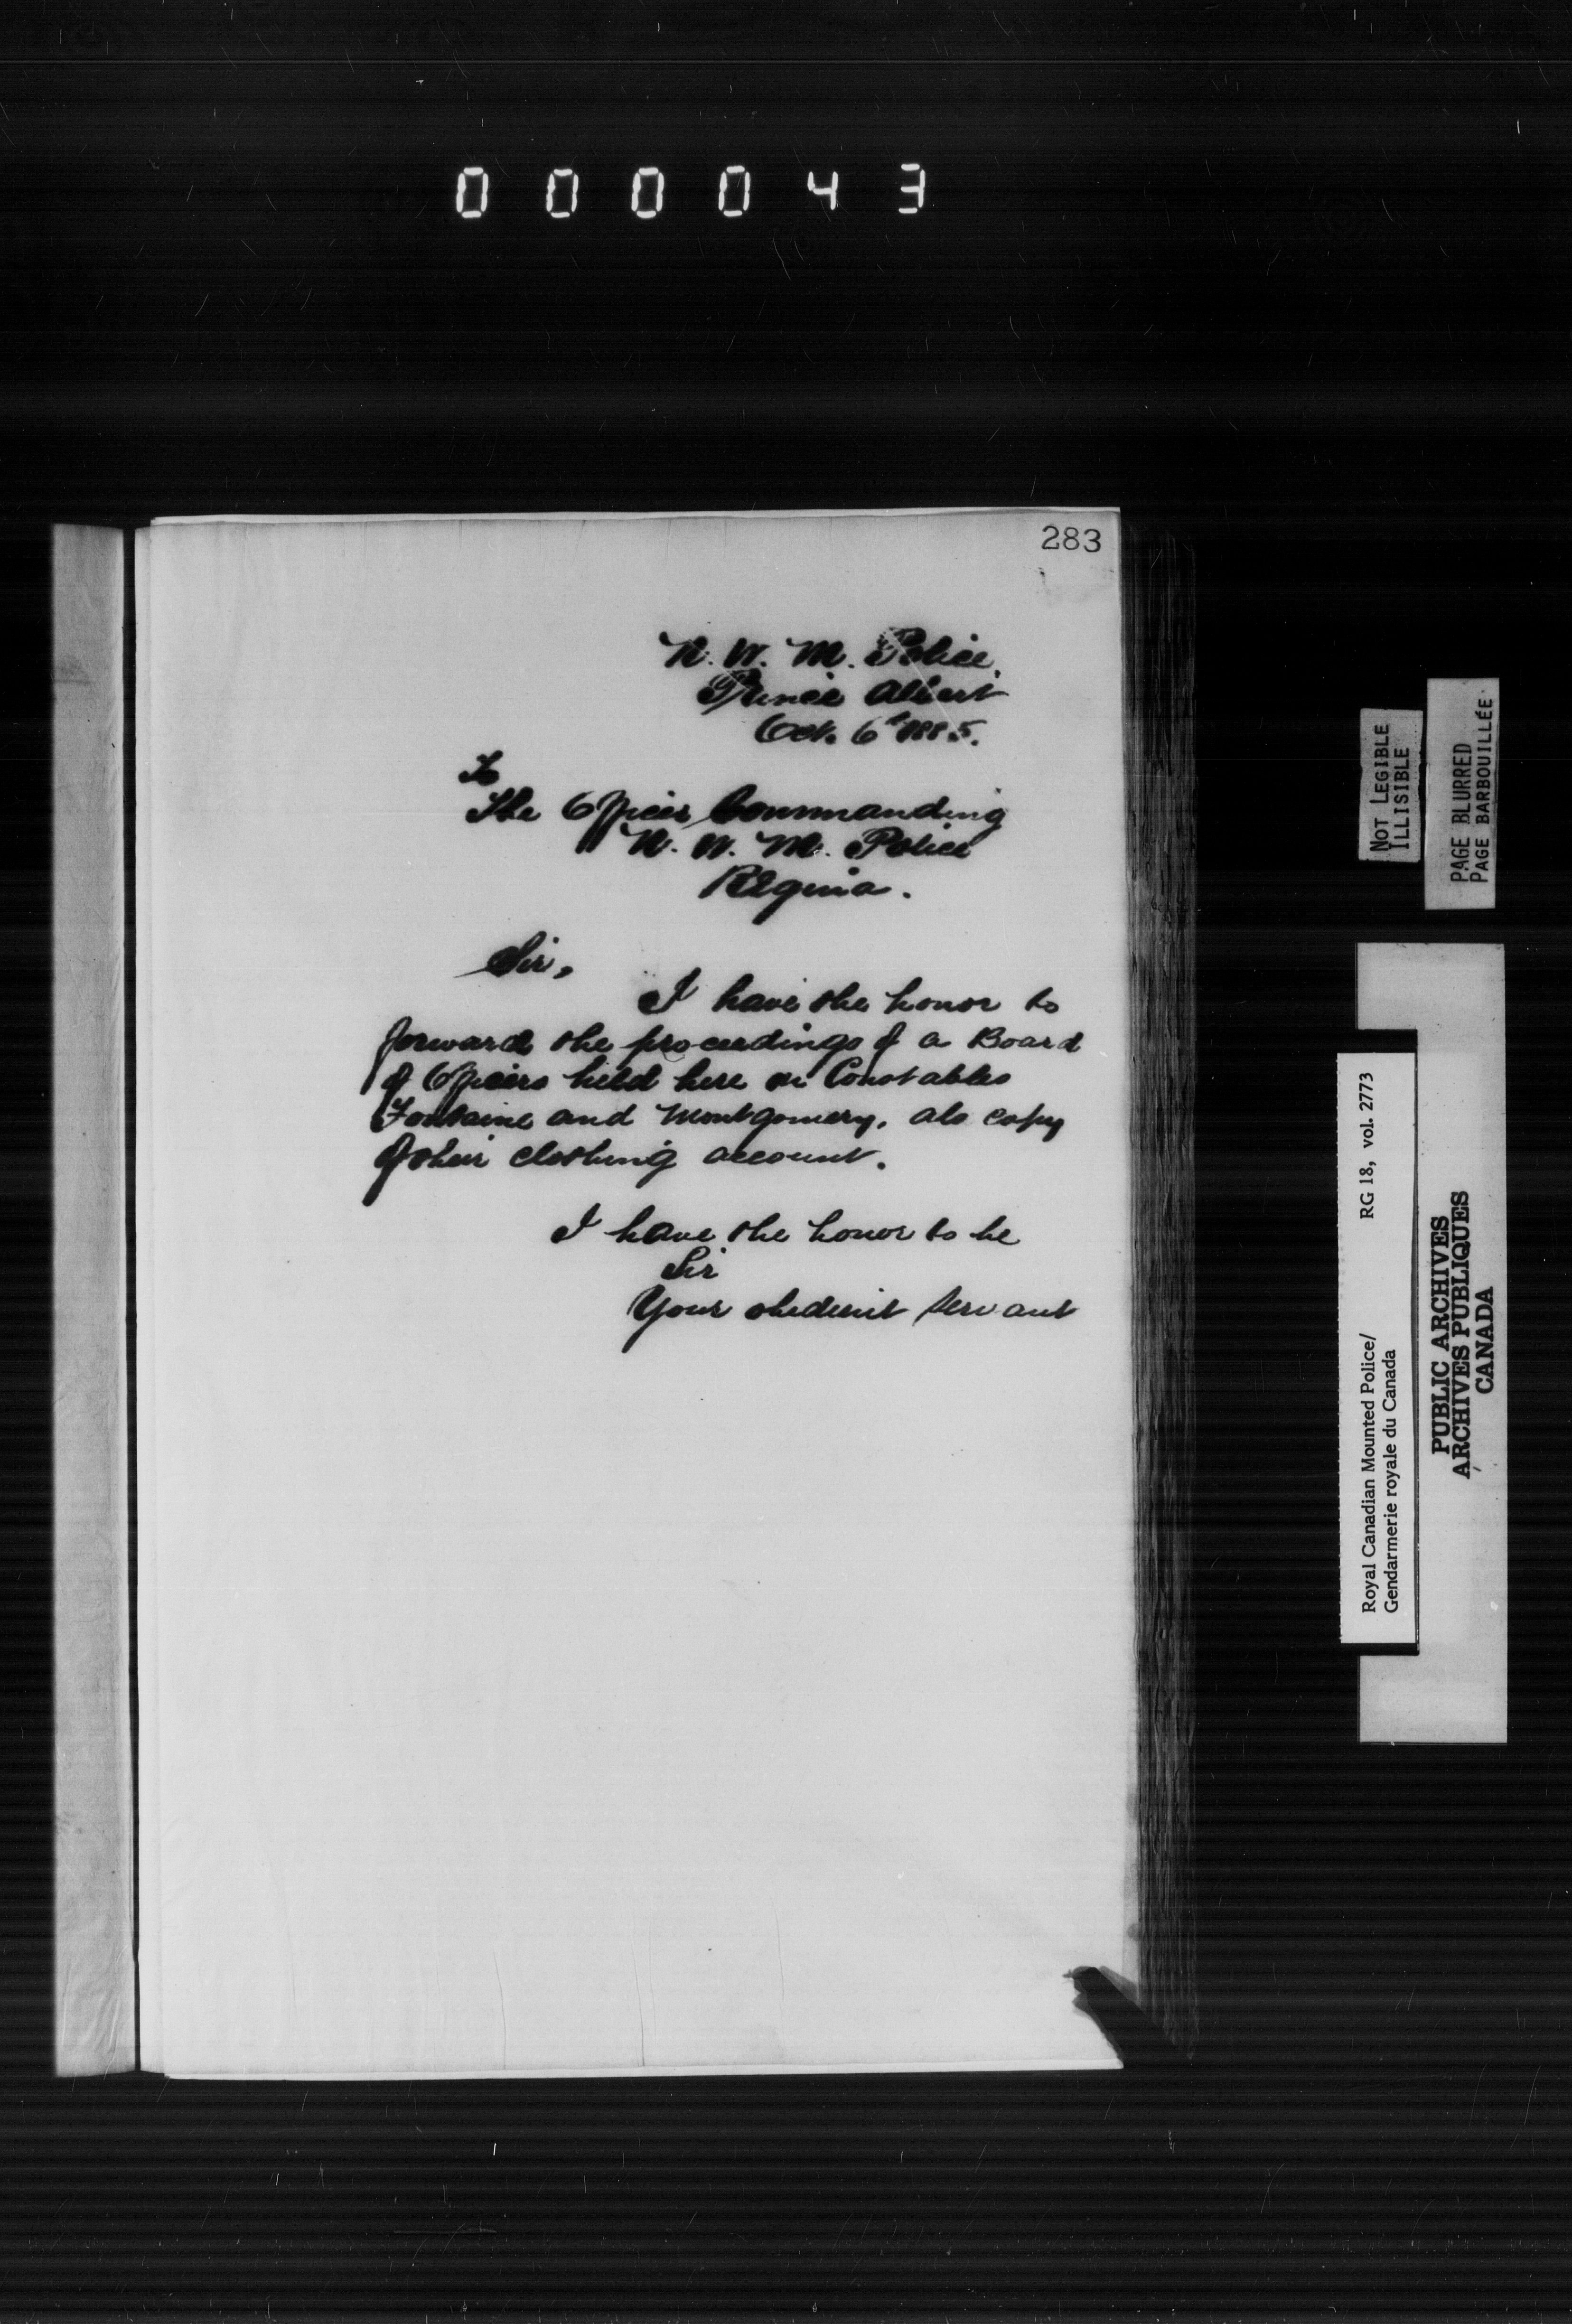 000043
283
N. W. M. Police.
Prince Albert
Oct. 6th 1885.
To
The Officer Commanding
N. W. M. Police
Regina.
Sir,
I have the honor to
forward the proceedings of a Board
of Officers held here on Constables
Fontaine and Montgomery, als copy
of their clothing account.
I have the honor to be
Sir
Your obedient Servant
NOT LEGIBLE
ILLISIBLE
PAGE BLURRED
PAGE BARBOUILLÉE
Royal Canadian Mounted Police/ RG 18, vol. 2773
Gendarmerie royale du Canada
PUBLIC ARCHIVES
ARCHIVES PUBLIQUES
CANADA